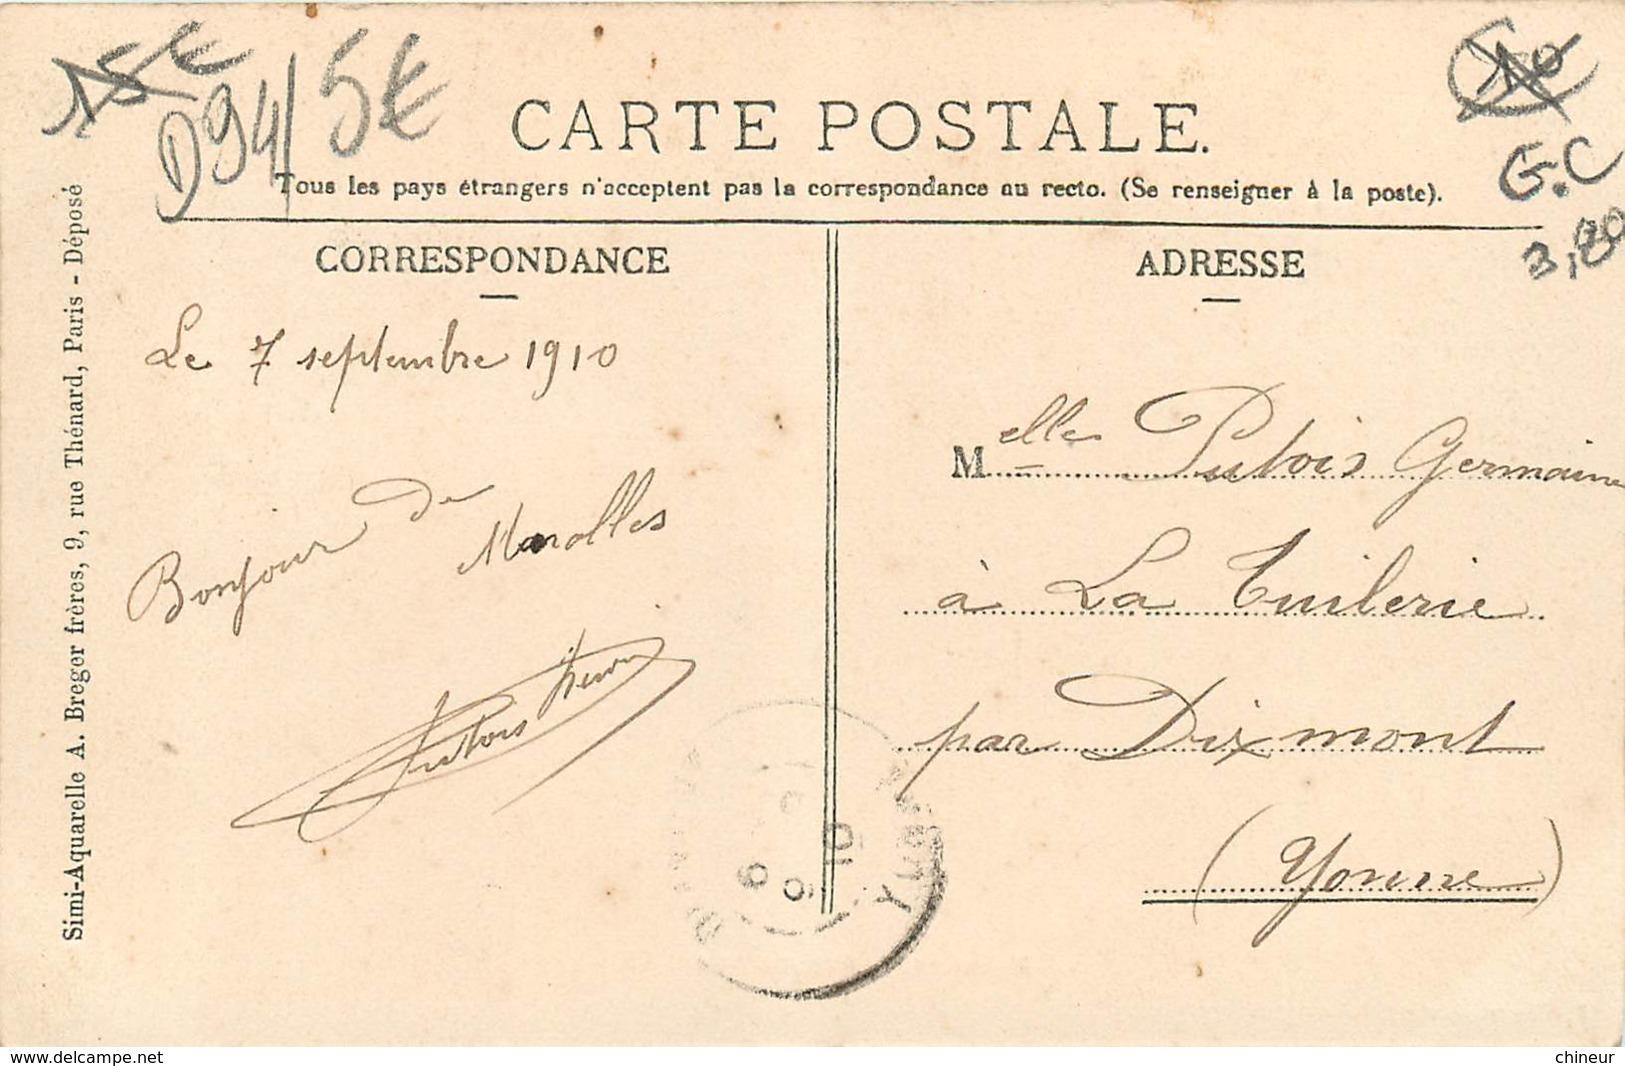 15€
D94
5€
G.C
3,80
CARTE POSTALE.
Tous les pays étrangers n'acceptent pas la correspondance au recto. (Se renseigner à la poste).
CORRESPONDANCE
ADRESSE
Le 7 septembre 1910
Bonjour de
Marolles
Putois
Melle Putois Germaine
à La Tuilerie
par Dixmont
(Yonne)
Simi-Aquarelle A. Breger frères, 9, rue Thénard, Paris - Déposé
chineur